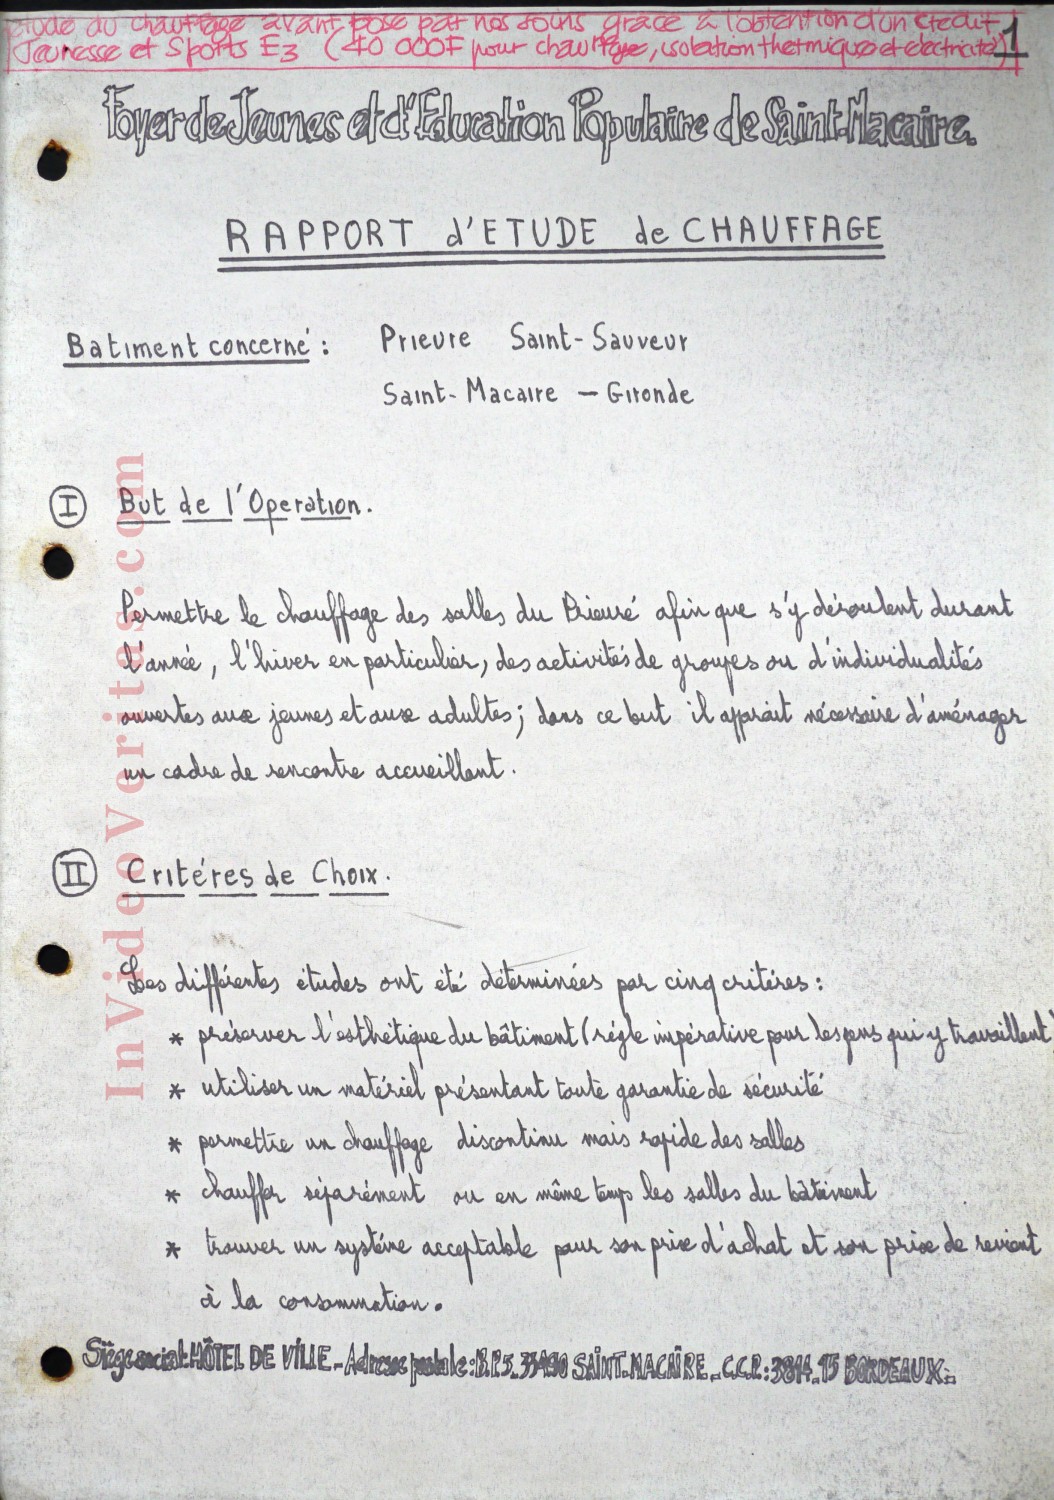 étude du chauffage avant pose par nos soins grâce à l'obtention d'un crédit
Jeunesse et Sports E3 (40 000F pour chauffage, isolation thermique et electricité)
1
Foyer de Jeunes et d'Education Populaire de Saint-Macaire.
RAPPORT d'ETUDE de CHAUFFAGE
Batiment concerné : Prieure Saint-Sauveur
Saint-Macaire - Gironde
I But de l'Operation.
Permettre le chauffage des salles du Prieuré afin que s'y déroulent durant
l'année, l'hiver en particulier, des activités de groupes ou d'individualités
ouvertes aux jeunes et aux adultes ; dans ce but il apparait nécessaire d'aménager
un cadre de rencontre accueillant.
II Critéres de Choix.
Les différentes études ont été déterminées par cinq critéres :
* préserver l'esthétique du bâtiment (régle impérative pour les gens qui y travaillent)
* utiliser un matériel présentant toute garantie de sécurité
* permettre un chauffage discontinu mais rapide des salles
* chauffer séparément ou en même temps les salles du bâtiment
* trouver un systéme acceptable pour son prix d'achat et son prix de revient
à la consommation.
Siège social: HÔTEL DE VILLE - Adresse postale : B.P.5. 33490 SAINT-MACAIRE - C.C.P. : 3814-95 BORDEAUX.
InVideoVeritas.com